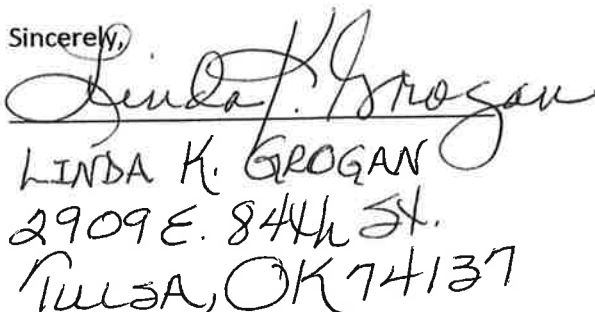 Sincerely,
Linda K. Grogan
LINDA K. GROGAN
2909 E. 84th St.
TULSA, OK 74137